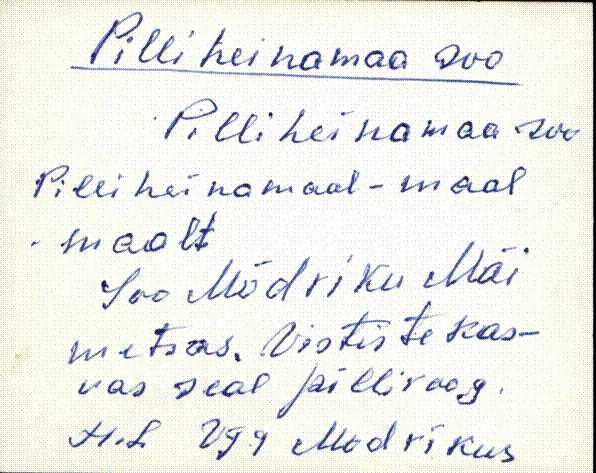 Pilliheinamaa soo
Pilliheinamaa soo
Pilliheinamaal - maal
- maalt
Soo Mõdriku Mäi
metsas. Vististe kas-
vas seal pilliroog.
H.L Vgg Mõdrikus